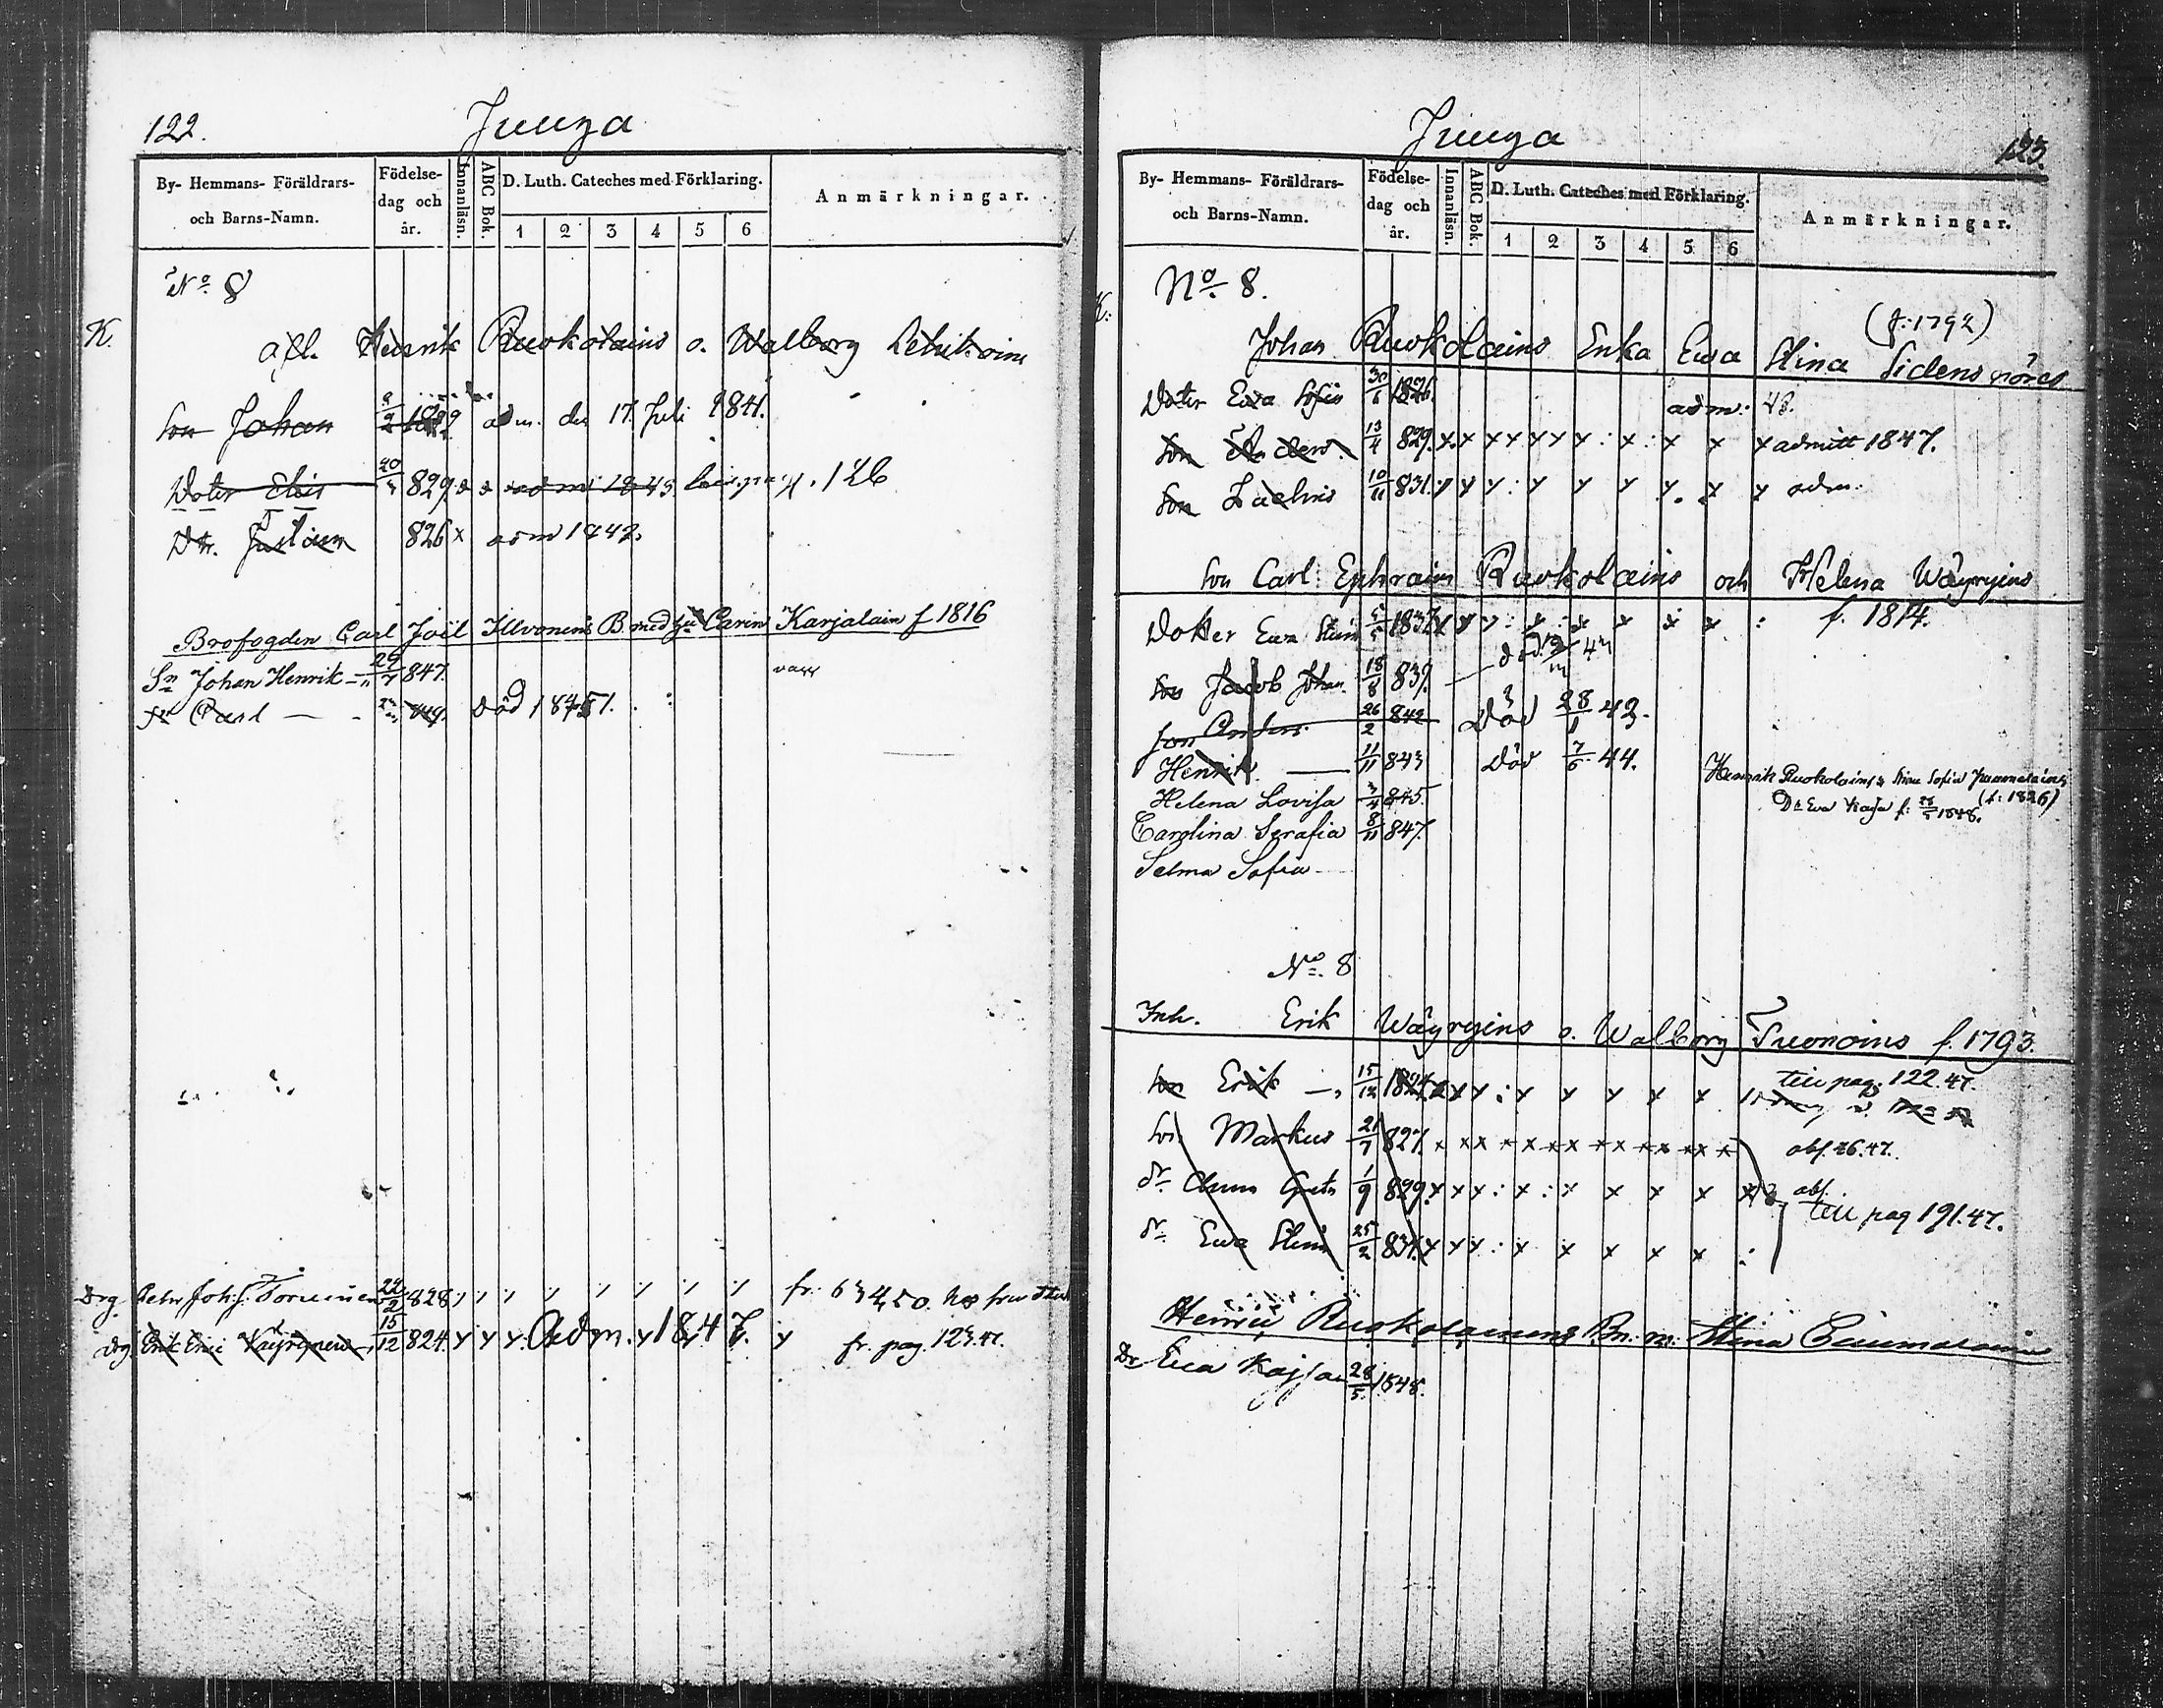 122.
Juuga
By- Hemmans- Föräldrars-
och Barns-Namn.
Födelse-
dag och
år.
Innanläsn.
ABC Bok.
D. Luth. Cateches med Förklaring.
1 2 3 4 5 6
Anmärkningar.
No. 8
K.
afl. Henrik Ruokolains o. Walborg
Son Johan 9/2 1822 adm. den 17 Juli 1841.
Doter 829 x x adm: 1843 p. 126
Dtr. 826 x adm 1842.
Brofogden Carl Joël Illvonens B med Carin Karjalain f 1816
Sn Johan Henrik 29/7 847. vacc
Sn Carl död
Drg Petr Johs Torvinen 24/2 828
drg. Erik Eric Väyrynen 15/12 824. x x x Adm. x 1847. x fr. pag. 123.47.
Juuga
123.
By- Hemmans- Föräldrars-
och Barns-Namn.
Födelse-
dag och
år.
Innanläsn.
ABC Bok.
D. Luth. Cateches med Förklaring.
1 2 3 4 5 6
Anmärkningar.
K:
No. 8.
(f: 1792)
Johan Ruokolains Enka Ewa Stina Sidensnöres
Doter Ewa Sofia 30/1 1826. adm: 43.
Son Anders 13/4 829. x. x x x x x x : x : x x x admitt 1847.
Son Zachris 10/11 831. x x x : x x x x. x x adm:
Son Carl Ephraim Ruokolains och Helena Wäyryins
f. 1814.
Dotter Ewa Stina 1837. x x x : x : x x x x :
Son Jacob Johan 18/8 839. död
Son Anders 26/2 842 Död 28/1 43.
Henrik. 11/11 843 död 7/6 44.
Henrik Ruokolains Stina Sofia
(f: 1826)
Helena Lovisa 3/4 845.
Dr Eva Kajsa f: 28/5 1848.
Carolina Serafia 8/11 847.
Selma Sofia
No. 8
Inh. Erik Wäyryins o. Walborg Tuonoins f. 1793.
Son Erik 15/12 1824. x x x : x x x x x till pag. 122.47.
Son Markus 21/7 827. x x x x x x x x x x x x x obs. 26.47.
dr Anna Greta 1/9 829. x x x : x : x x x x x obs.
till pag 191.47.
dr Ewa Stina 25/2 834. x x x : x x x x x :
Henric Ruokolainens Bn: m: Stina
Dr Eva Kajsa 28/5 1848.